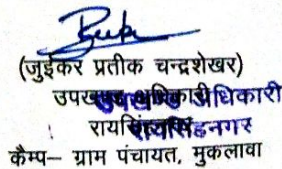 (जुईकर प्रतीक चन्द्रशेखर)
उपखण्ड अधिकारी
रायसिंहनगर
कैम्प– ग्राम पंचायत, मुकलावा